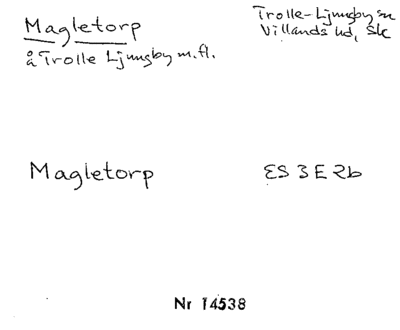 Magletorp
å Trolle Ljungby m.fl.
Trolle-Ljungby sn
Villands hd, Sk
Magletorp
ES 3 E 2b
Nr 14538